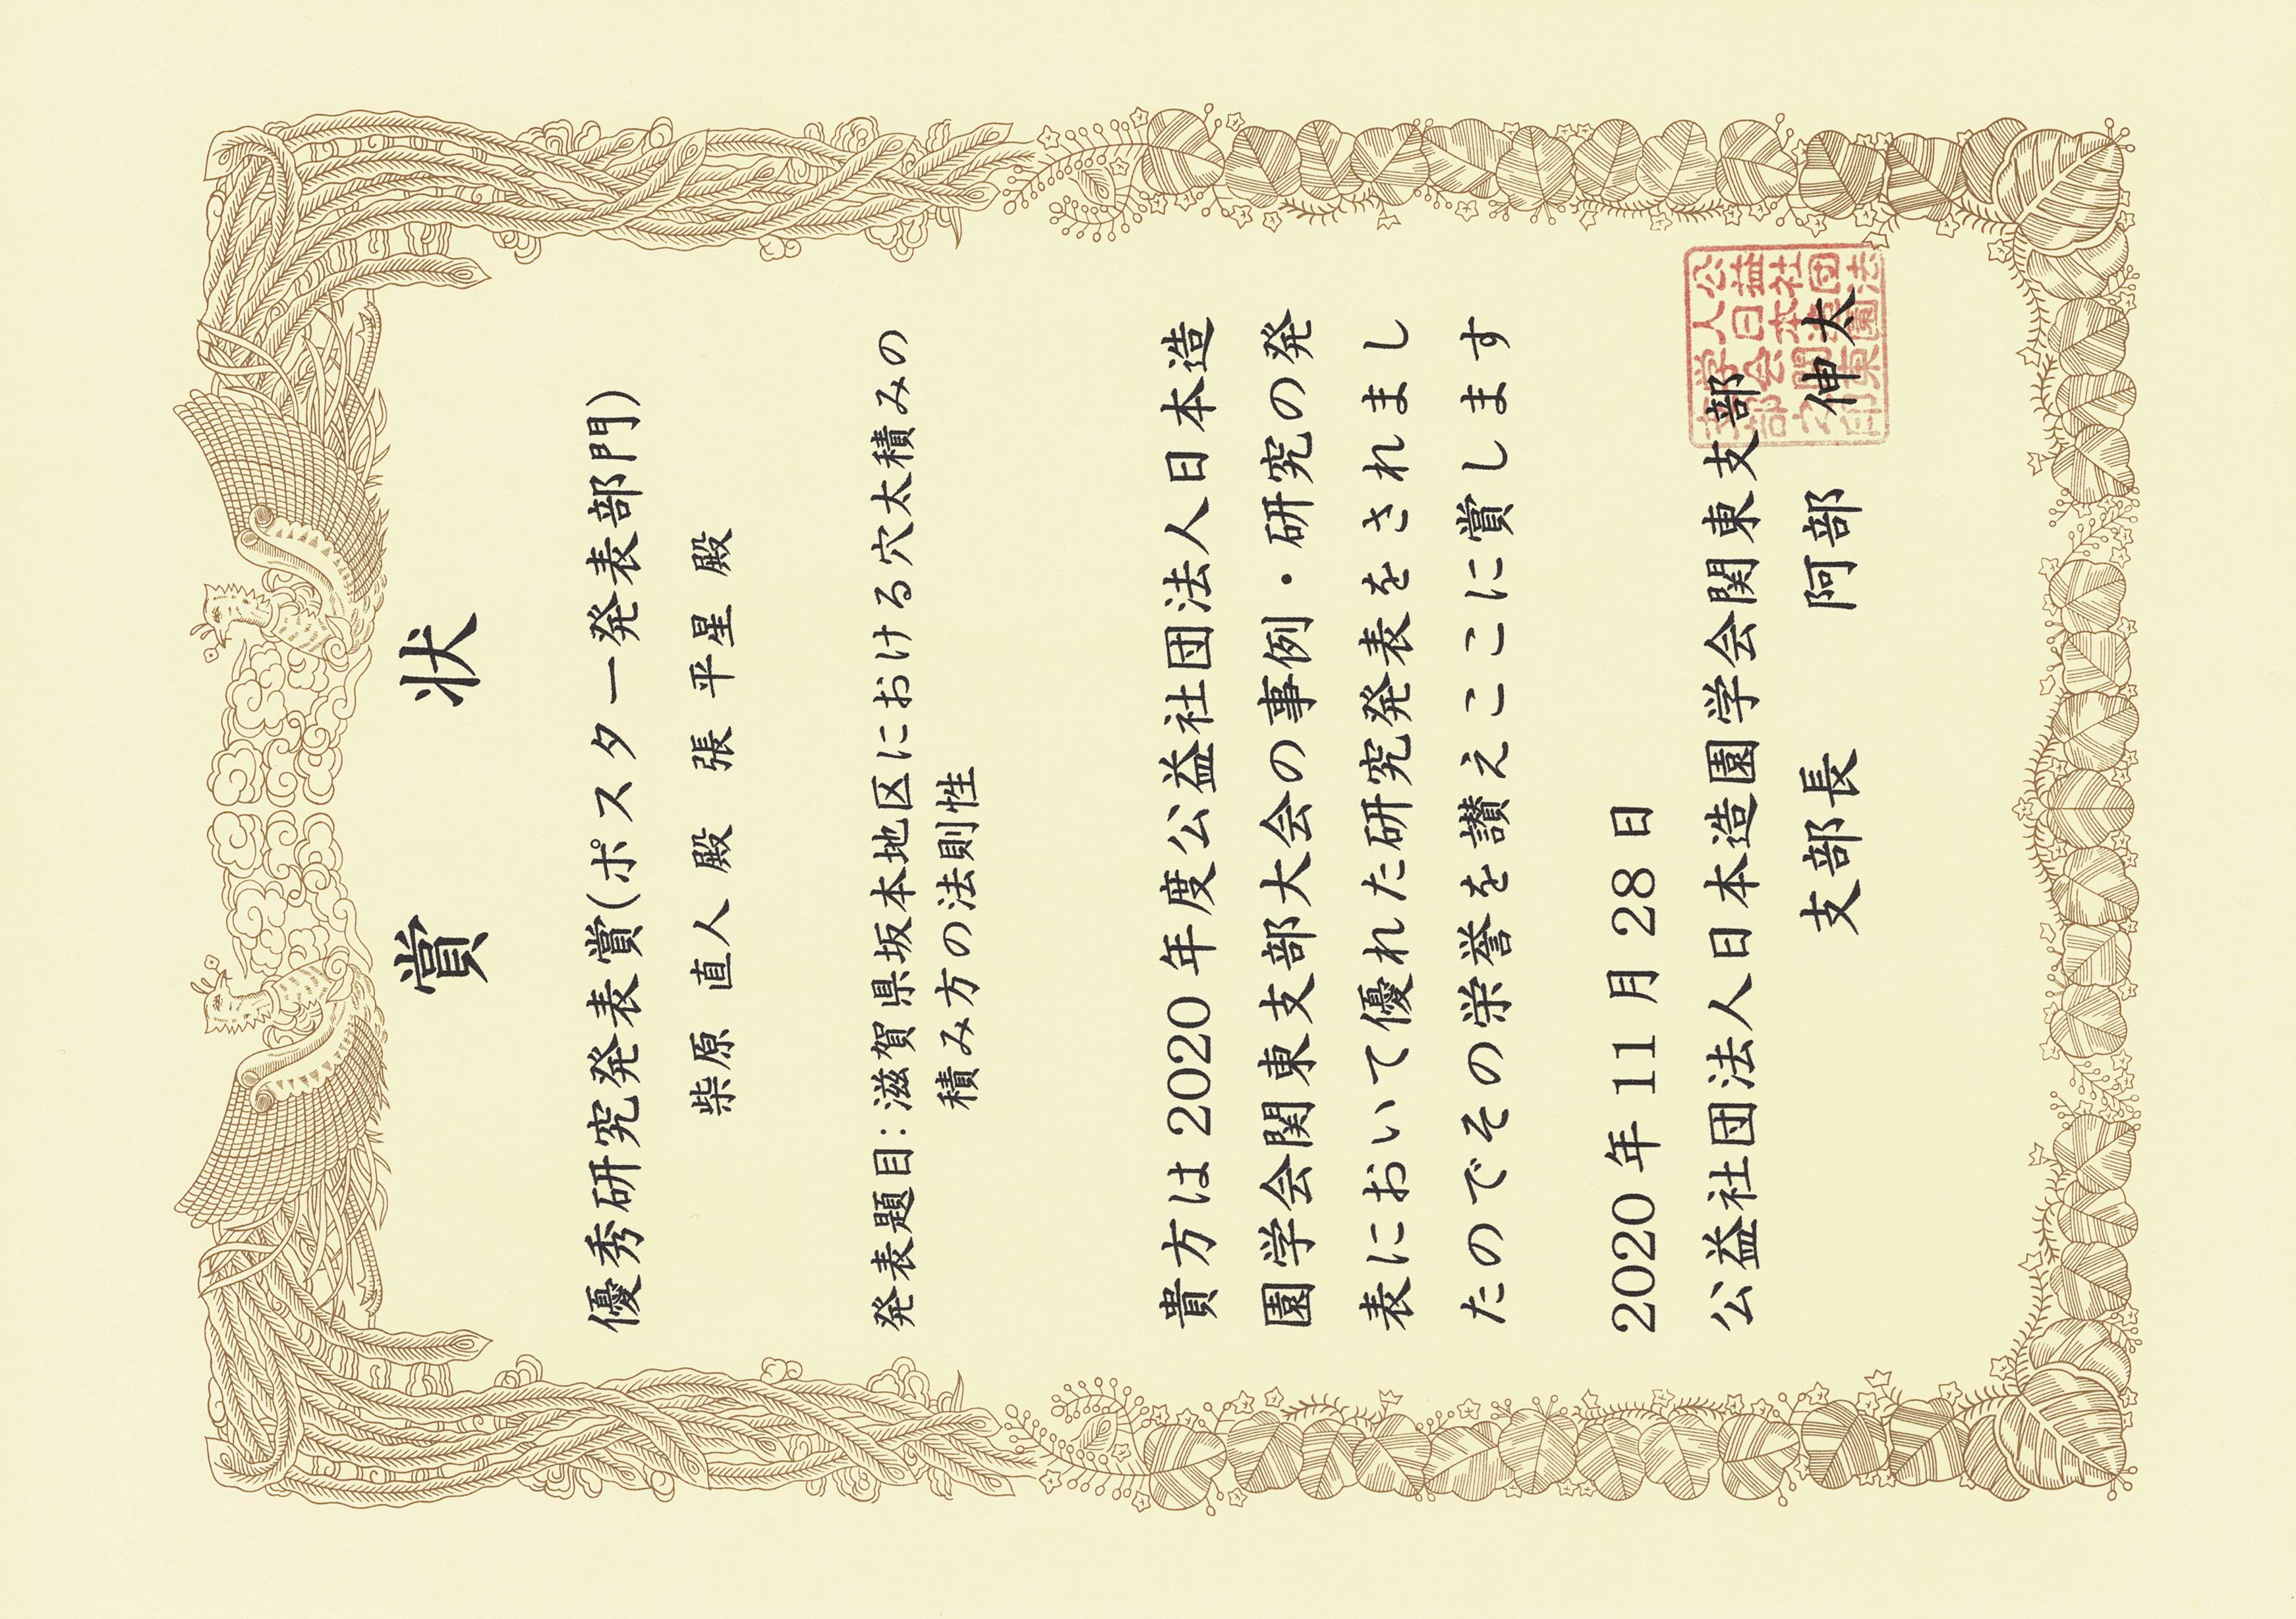 賞 状
優秀研究発表賞(ポスター発表部門)
柴原 直人 殿 張 平星 殿
発表題目:滋賀県坂本地区における穴太積みの
積み方の法則性
貴方は2020年度公益社団法人日本造
園学会関東支部大会の事例・研究の発
表において優れた研究発表をされまし
たのでその栄誉を讃えここに賞します
2020年11月28日
公益社団法人日本造園学会関東支部
支部長 阿部 伸太